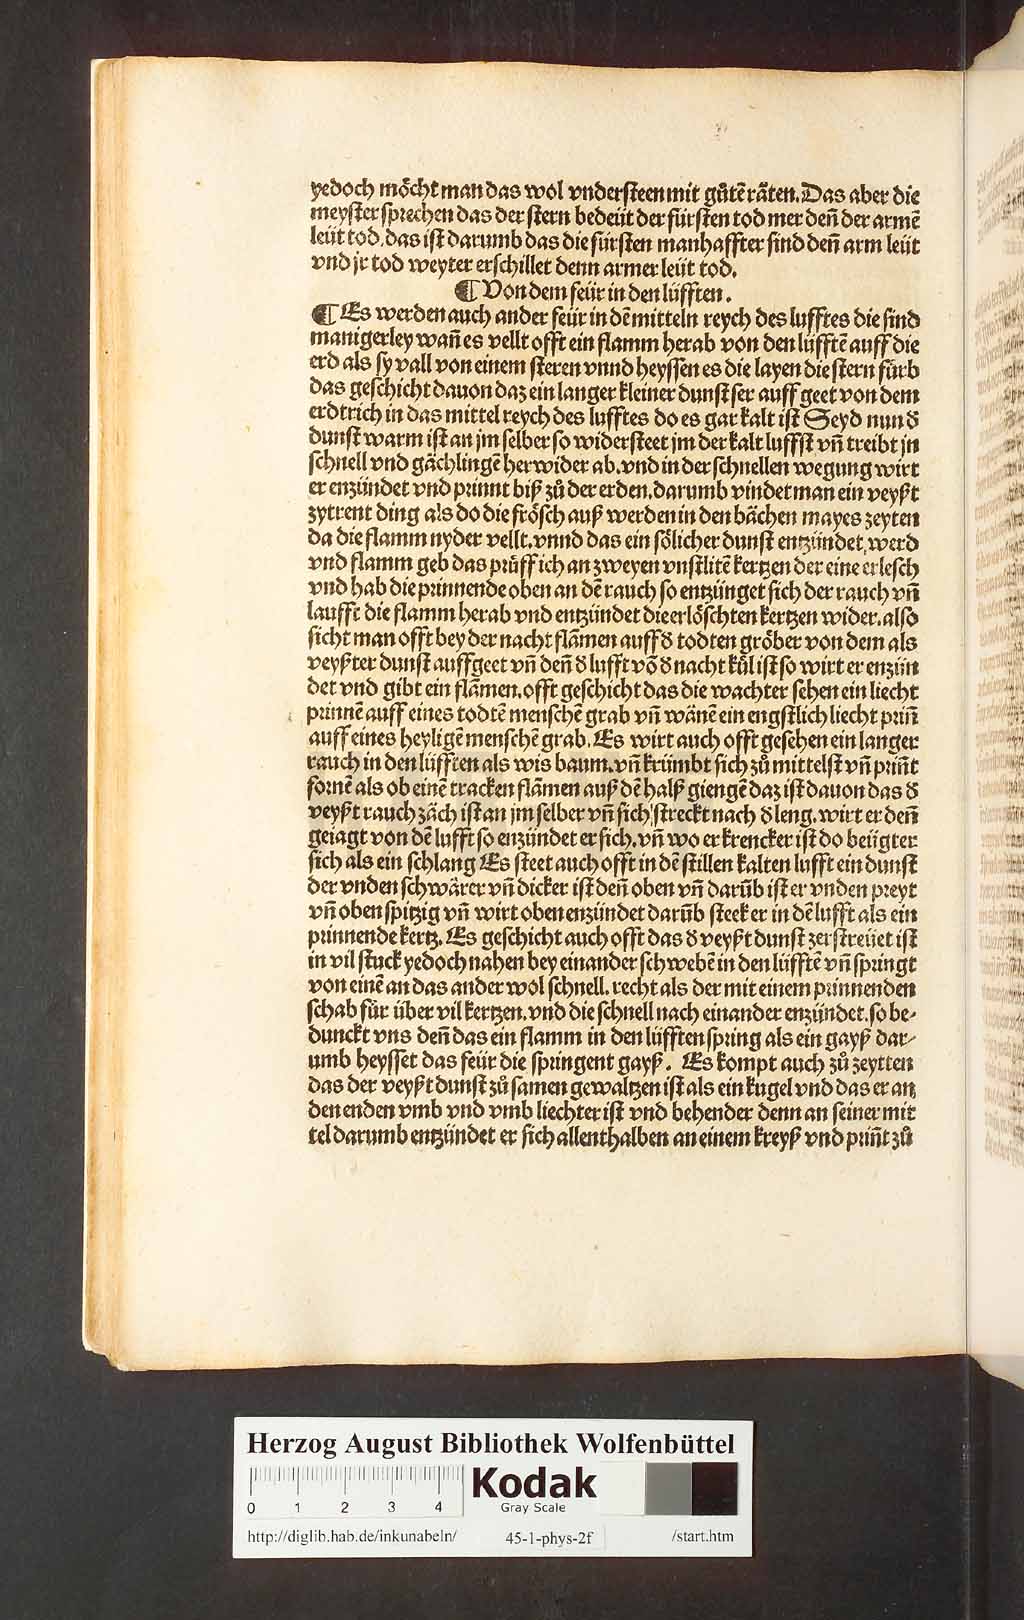 yedoch möcht man das wol vndersteen mit gůtē rätten. Das aber die
meyster sprechen das der stern bedeüt der fürsten tod mer den̄ der armē
leüt tod. das ist darumb das die fürsten manhaffter sind den̄ arm leüt
vnd jr tod weyter erschillet denn armer leüt tod.
¶ Von dem feür in den lüfften.
¶ Es werden auch ander feür in dē mitteln reych des lufftes die sind
manigerley wan̄ es vellt offt ein flamm herab von den lüfftē auff die
erd als sy vall von einem steren vnnd heyssen es die layen die stern fürb
das geschicht dauon daz ein langer kleiner dunst ser auff geet von dem
erdtrich in das mittel reych des lufftes do es gar kalt ist Seyd nun d̕
dunst warm ist an jm selber so widersteet jm der kalt luffst vn̄ treibt jn
schnell vnd gächlingē her wider ab. vnd in der schnellen wegung wirt
er enzündet vnd prinnt biß zů der erden. darumb vindet man ein veyßt
zytrent ding als do die frösch auß werden in den bächen mayes zeyten
da die flamm nyder vellt. vnnd das ein sölicher dunst entzündet werd
vnd flamm geb das prüff ich an zweyen vnslitē kertzen der eine erlesch
vnd hab die prinnende oben an dē rauch so entzünget sich der rauch vn̄
laufft die flamm herab vnd entzündet die erlöschten kertzen wider. also
sicht man offt bey der nacht flāmen auff d̕ todten gröber von dem als
veyßter dunst auffgeet vn̄ den̄ d̕ lufft vō d̕ nacht kůl ist so wirt er enzün
det vnd gibt ein flāmen. offt geschicht das die wachter sehen ein liecht
prinnē auff eines todtē menschē grab vn̄ wänē ein engstlich liecht prin̄
auff eines heyligē menschē grab. Es wirt auch offt gesehen ein langer
rauch in den lüfften als wis baum. vn̄ krümbt sich zů mittelst vn̄ prin̄t
fornē als ob einē tracken flāmen auß dē halß giengē daz ist dauon das d̕
veyßt rauch zäch ist an jm selber vn̄ sich streckt nach d̕ leng. wirt er den̄
geiagt von dē lufft so enzündet er sich. vn̄ wo er krencker ist do beügter
sich als ein schlang Es steet auch offt in dē stillen kalten lufft ein dunst
der vnden schwärer vn̄ dicker ist den̄ oben vn̄ darūb ist er vnden preyt
vn̄ oben spitzig vn̄ wirt oben enzündet darūb steek er in dē lufft als ein
prinnende kertz. Es geschicht auch offt das d̕ veyßt dunst zerstreüet ist
in vil stuck yedoch nahen bey einander schwebē in den lüfftē vn̄ springt
von einē an das ander wol schnell. recht als der mit einem prinnenden
schab für über vil kertzen. vnd die schnell nach einander enzündet. so be-
dunckt vns den̄ das ein flamm in den lüfften spring als ein gayß dar-
umb heysset das feür die springent gayß. Es kompt auch zů zeytten
das der veyßt dunst zů samen gewaltzen ist als ein kugel vnd das er an
den enden vmb vnd vmb liechter ist vnd behender denn an seiner mit
tel darumb entzündet er sich allenthalben an einem kreyß vnd prin̄t zů
Herzog August Bibliothek Wolfenbüttel
0 1 2 3 4 Kodak
Gray Scale
http://diglib.hab.de/inkunabeln/ 45-1-phys-2f /start.htm